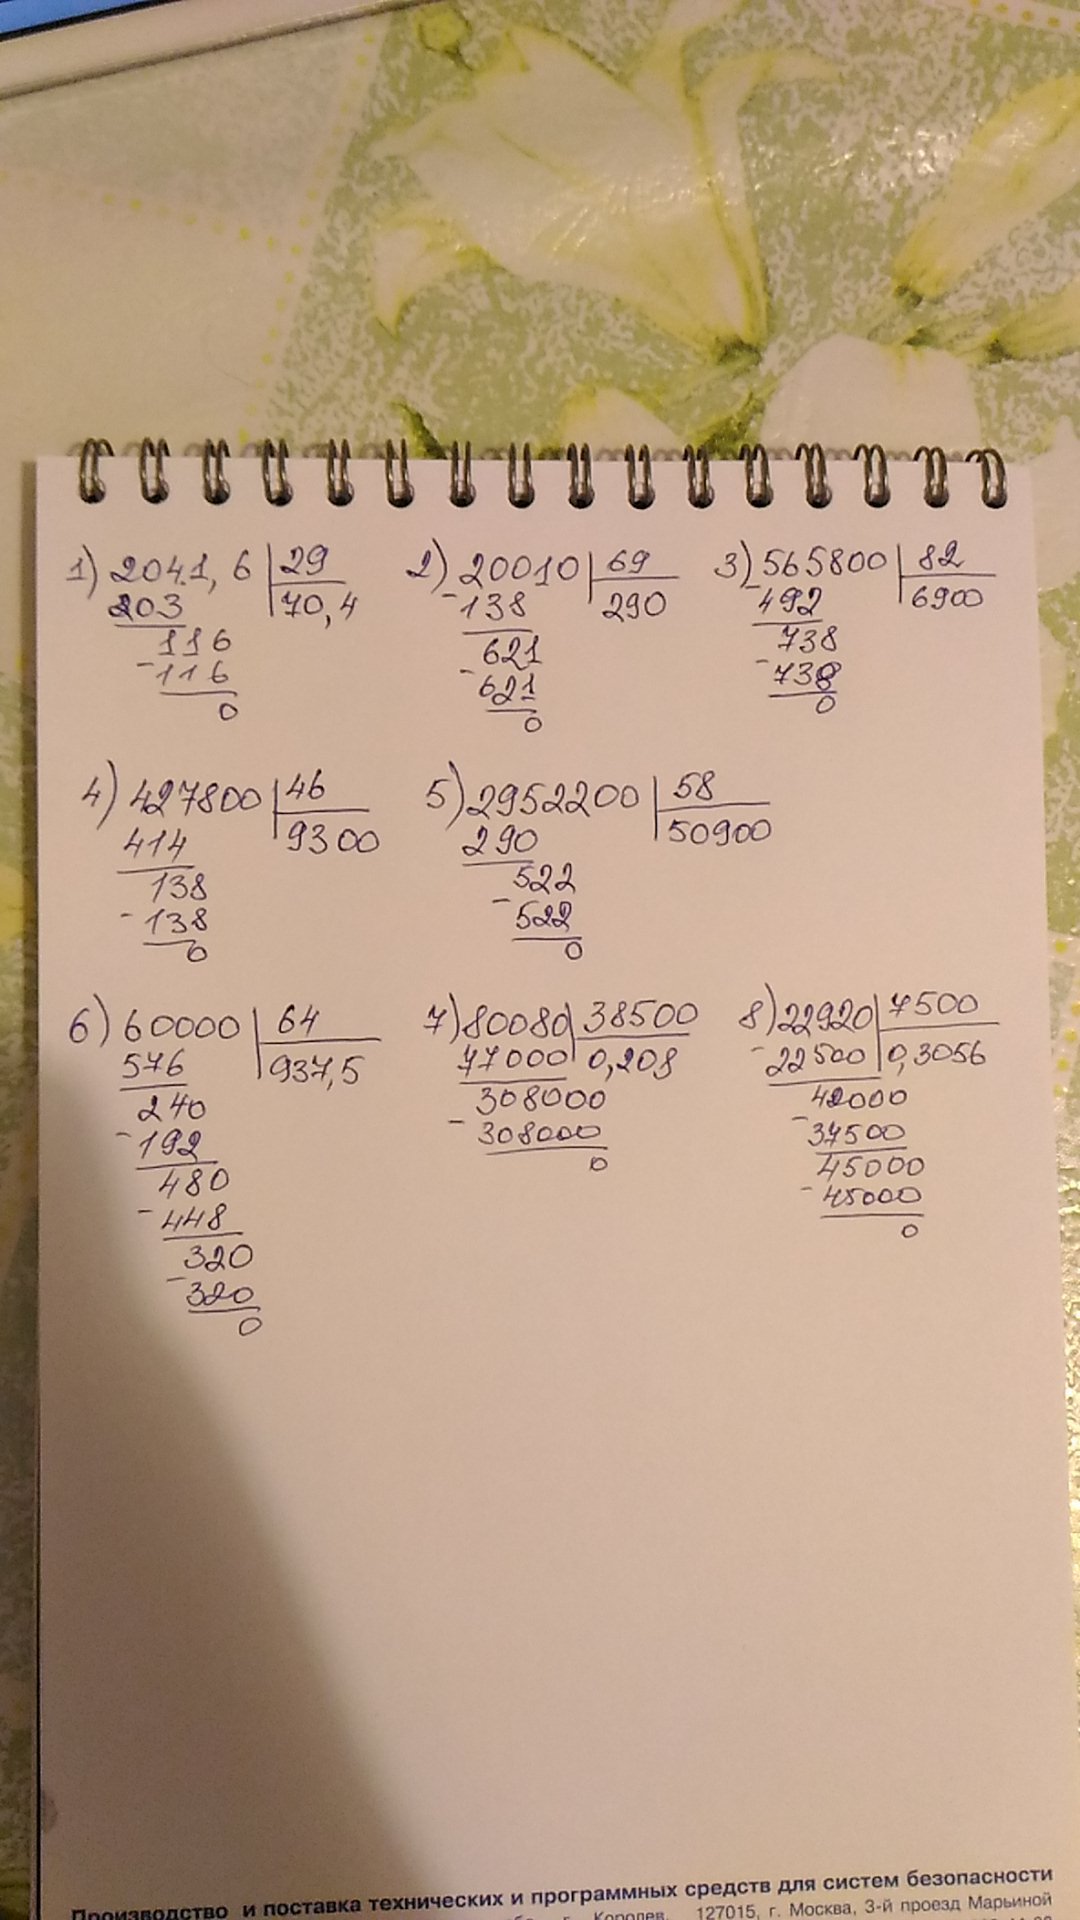 1) 2041,6 | 29   2) 20010 | 69   3) 565800 | 82
203   70,4   -138   290   -492   6900
116   621   738
-116   -621   -738
0   0   0
4) 427800 | 46   5) 2952200 | 58
414   9300   290   50900
138   522
-138   -522
0   0
6) 60000 | 64   7) 80080 | 38500   8) 22920 | 7500
576   937,5   77000   0,208   -22500   0,3056
240   308000   42000
-192   -308000   -37500
480   0   45000
-448   -45000
320   0
-320
0
Производство и поставка технических и программных средств для систем безопасности
г. Королев, 127015, г. Москва, 3-й проезд Марьиной